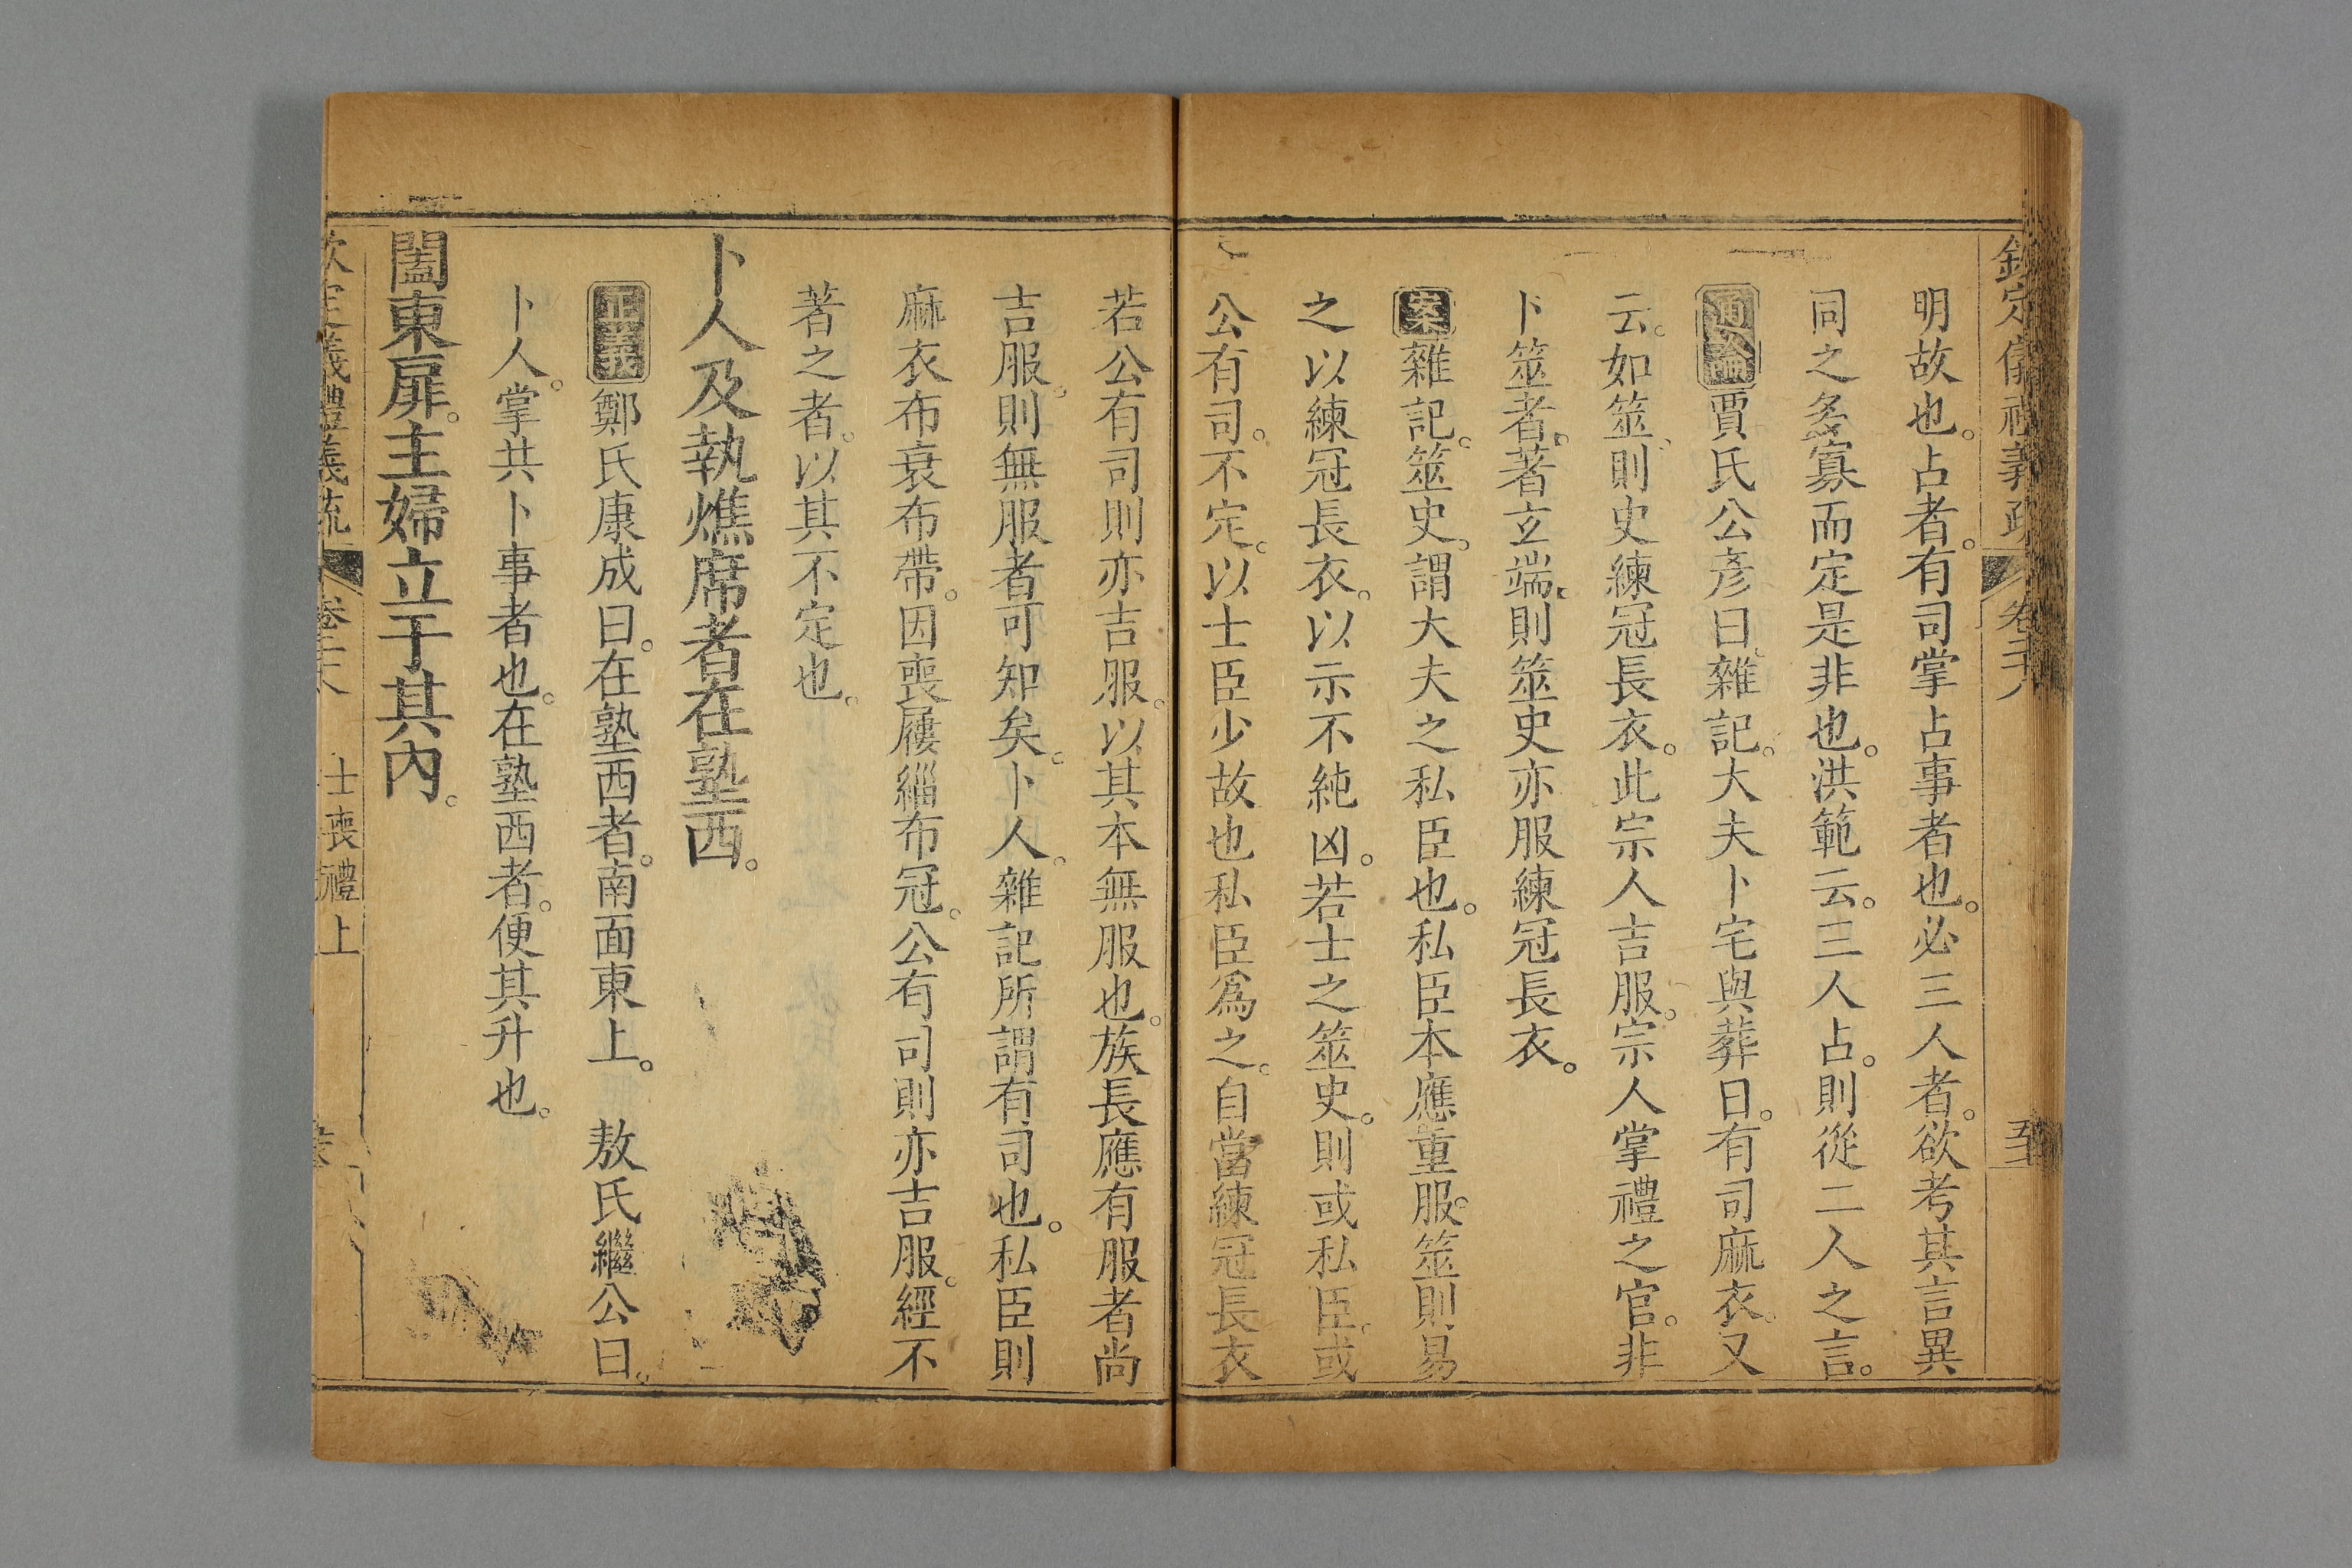 欽定儀禮義疏 卷二十八
明故也。占者。有司掌占事者也。必三人者。欲考其言異
同之多寡而定是非也。洪範云。三人占。則從二人之言。
通論賈氏公彥曰。雜記。大夫卜宅與葬日。有司麻衣。又
云。如筮。則史練冠長衣。此宗人吉服。宗人掌禮之官。非
卜筮者。著玄端。則筮史亦服練冠長衣。
案雜記。筮史。謂大夫之私臣也。私臣本應重服。筮則易
之以練冠長衣。以示不純凶。若士之筮史。則或私臣。或
公有司。不定。以士臣少故也私臣為之。自當練冠長衣
若公有司則亦吉服。以其本無服也。族長應有服者尚
吉服。則無服者可知矣。卜人。雜記所謂有司也。私臣則
麻衣布衰布帶。因喪屨緇布冠。公有司則亦吉服。經不
著之者。以其不定也。
卜人及執燋席者在塾西。
正義鄭氏康成曰。在塾西者。南面東上。 敖氏繼公曰。
卜人。掌共卜事者也。在塾西者。便其升也。
闔東扉。主婦立于其內。
欽定儀禮義疏 卷二十八 士喪禮上